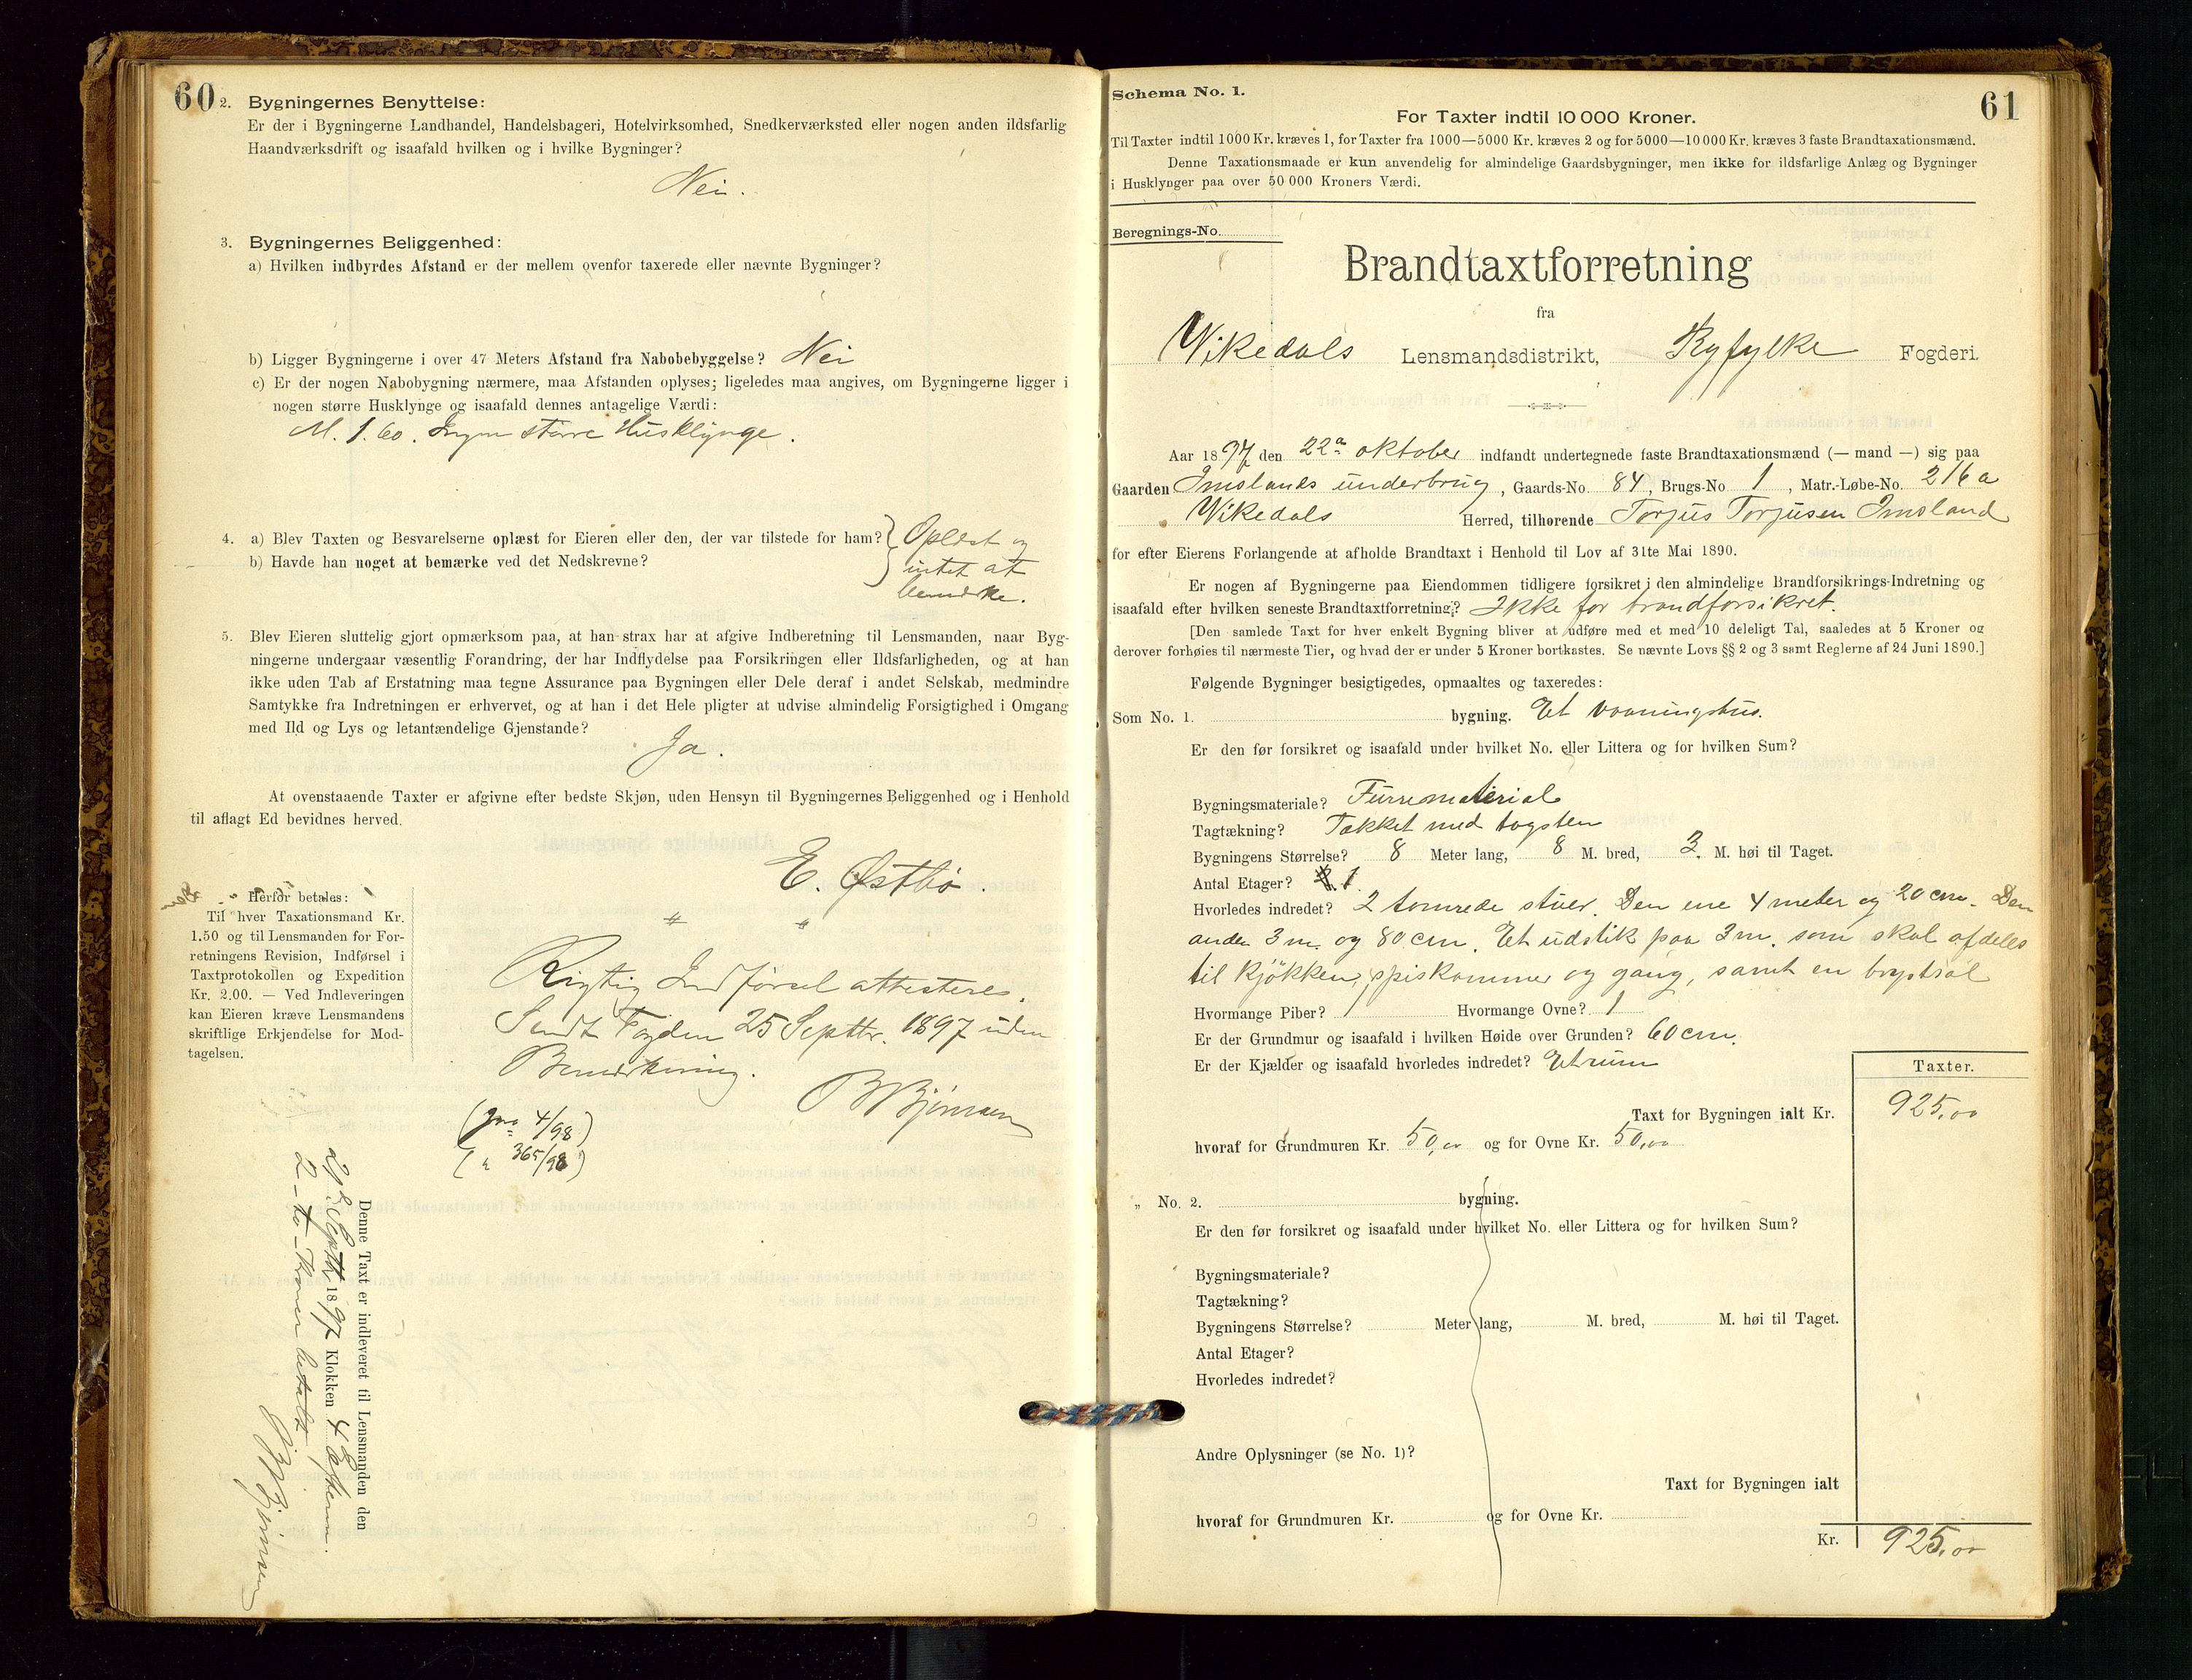 60
2. Bygningernes Benyttelse:
Er der i Bygningerne Landhandel, Handelsbageri, Hotelvirksomhed, Snedkerværksted eller nogen anden ildsfarlig
Haandværksdrift og isaafald hvilken og i hvilke Bygninger?
Nei.
3. Bygningernes Beliggenhed:
a) Hvilken indbyrdes Afstand er der mellem ovenfor taxerede eller nævnte Bygninger?
b) Ligger Bygningerne i over 47 Meters Afstand fra Nabobebyggelse? Nei
c) Er der nogen Nabobygning nærmere, maa Afstanden oplyses; ligeledes maa angives, om Bygningerne ligger i
nogen større Husklynge og isaafald dennes antagelige Værdi:
M. 1.60. Ingen större Husklynge.
4. a) Blev Taxten og Besvarelserne oplæst for Eieren eller den, der var tilstede for ham? Oplæst og
b) Havde han noget at bemærke ved det Nedskrevne? intet at
bemærke.
5. Blev Eieren sluttelig gjort opmærksom paa, at han strax har at afgive Indberetning til Lensmanden, naar Byg-
ningerne undergaar væsentlig Forandring, der har Indflydelse paa Forsikringen eller Ildsfarligheden, og at han
ikke uden Tab af Erstatning maa tegne Assurance paa Bygningen eller Dele deraf i andet Selskab, medmindre
Samtykke fra Indretningen er erhvervet, og at han i det Hele pligter at udvise almindelig Forsigtighed i Omgang
med Ild og Lys og letantændelige Gjenstande?
Ja.
At ovenstaaende Taxter er afgivne efter bedste Skjøn, uden Hensyn til Bygningernes Beliggenhed og i Henhold
til aflagt Ed bevidnes herved.
E. Østbö.
Herfor betales:
Til hver Taxationsmand Kr.
1.50 og til Lensmanden for For-
retningens Revision, Indførsel i
Taxtprotokollen og Expedition
Kr. 2.00. — Ved Indleveringen
kan Eieren kræve Lensmandens
skriftlige Erkjendelse for Mod-
tagelsen.
Rigtig Indførsel attesteres.
Sendt Fogden 25 Septbr. 1897 uden
Bemærkning.
B Bjørnsen
4/98)
365/98)
Denne Taxt er indleveret til Lensmanden den
Septbr 1897 Klokken 4 Efterm.
2 – to – Kroner betalt
B Bjørnsen
61
Schema No. 1.
For Taxter indtil 10 000 Kroner.
Til Taxter indtil 1000 Kr. kræves 1, for Taxter fra 1000—5000 Kr. kræves 2 og for 5000—10 000 Kr. kræves 3 faste Brandtaxationsmænd.
Denne Taxationsmaade er kun anvendelig for almindelige Gaardsbygninger, men ikke for ildsfarlige Anlæg og Bygninger
i Husklynger paa over 50 000 Kroners Værdi.
Beregnings-No.
Brandtaxtforretning
fra
Vikedals Lensmandsdistrikt, Ryfylke Fogderi.
Aar 1897 den 22a oktober indfandt undertegnede faste Brandtaxationsmænd (— mand —) sig paa
Gaarden Imslands underbrug, Gaards-No. 84, Brugs-No 1, Matr.-Løbe-No. 216 a
Vikedals Herred, tilhørende Torjus Torjusen Imsland
for efter Eierens Forlangende at afholde Brandtaxt i Henhold til Lov af 31te Mai 1890.
Er nogen af Bygningerne paa Eiendommen tidligere forsikret i den almindelige Brandforsikrings-Indretning og
isaafald efter hvilken seneste Brandtaxtforretning? Ikke før brandforsikret.
[Den samlede Taxt for hver enkelt Bygning bliver at udføre med et med 10 deleligt Tal, saaledes at 5 Kroner og
derover forhøies til nærmeste Tier, og hvad der er under 5 Kroner bortkastes. Se nævnte Lovs §§ 2 og 3 samt Reglerne af 24 Juni 1890.]
Følgende Bygninger besigtigedes, opmaaltes og taxeredes:
Som No. 1. bygning. Et vaaningshus.
Er den før forsikret og isaafald under hvilket No. eller Littera og for hvilken Sum?
Bygningsmateriale? Furrematerial
Tagtækning? Takket med tagsten
Bygningens Størrelse? 8 Meter lang, 8 M. bred, 3. M. høi til Taget.
Antal Etager? 1.
Hvorledes indredet? 2 tømrede stuer. Den ene 4 meter og 20 cm. Den
anden 3 m. og 80 cm. Et udstik paa 3 m. som skal afdeles
til kjökken, spiskammer og gang, samt en
Hvormange Piber? 1 Hvormange Ovne? 1
Er der Grundmur og isaafald i hvilken Høide over Grunden? 60 cm.
Er der Kjælder og isaafald hvorledes indredet? Et rum
Taxter.
Taxt for Bygningen ialt Kr. 925,00
hvoraf for Grundmuren Kr. 50,00 og for Ovne Kr. 50,00
„ No. 2. bygning.
Er den før forsikret og isaafald under hvilket No. eller Littera og for hvilken Sum?
Bygningsmateriale?
Tagtækning?
Bygningens Størrelse? Meter lang, M. bred, M. høi til Taget.
Antal Etager?
Hvorledes indredet?
Andre Oplysninger (se No. 1)?
Taxt for Bygningen ialt
hvoraf for Grundmuren Kr. og for Ovne Kr.
Kr. 925,00